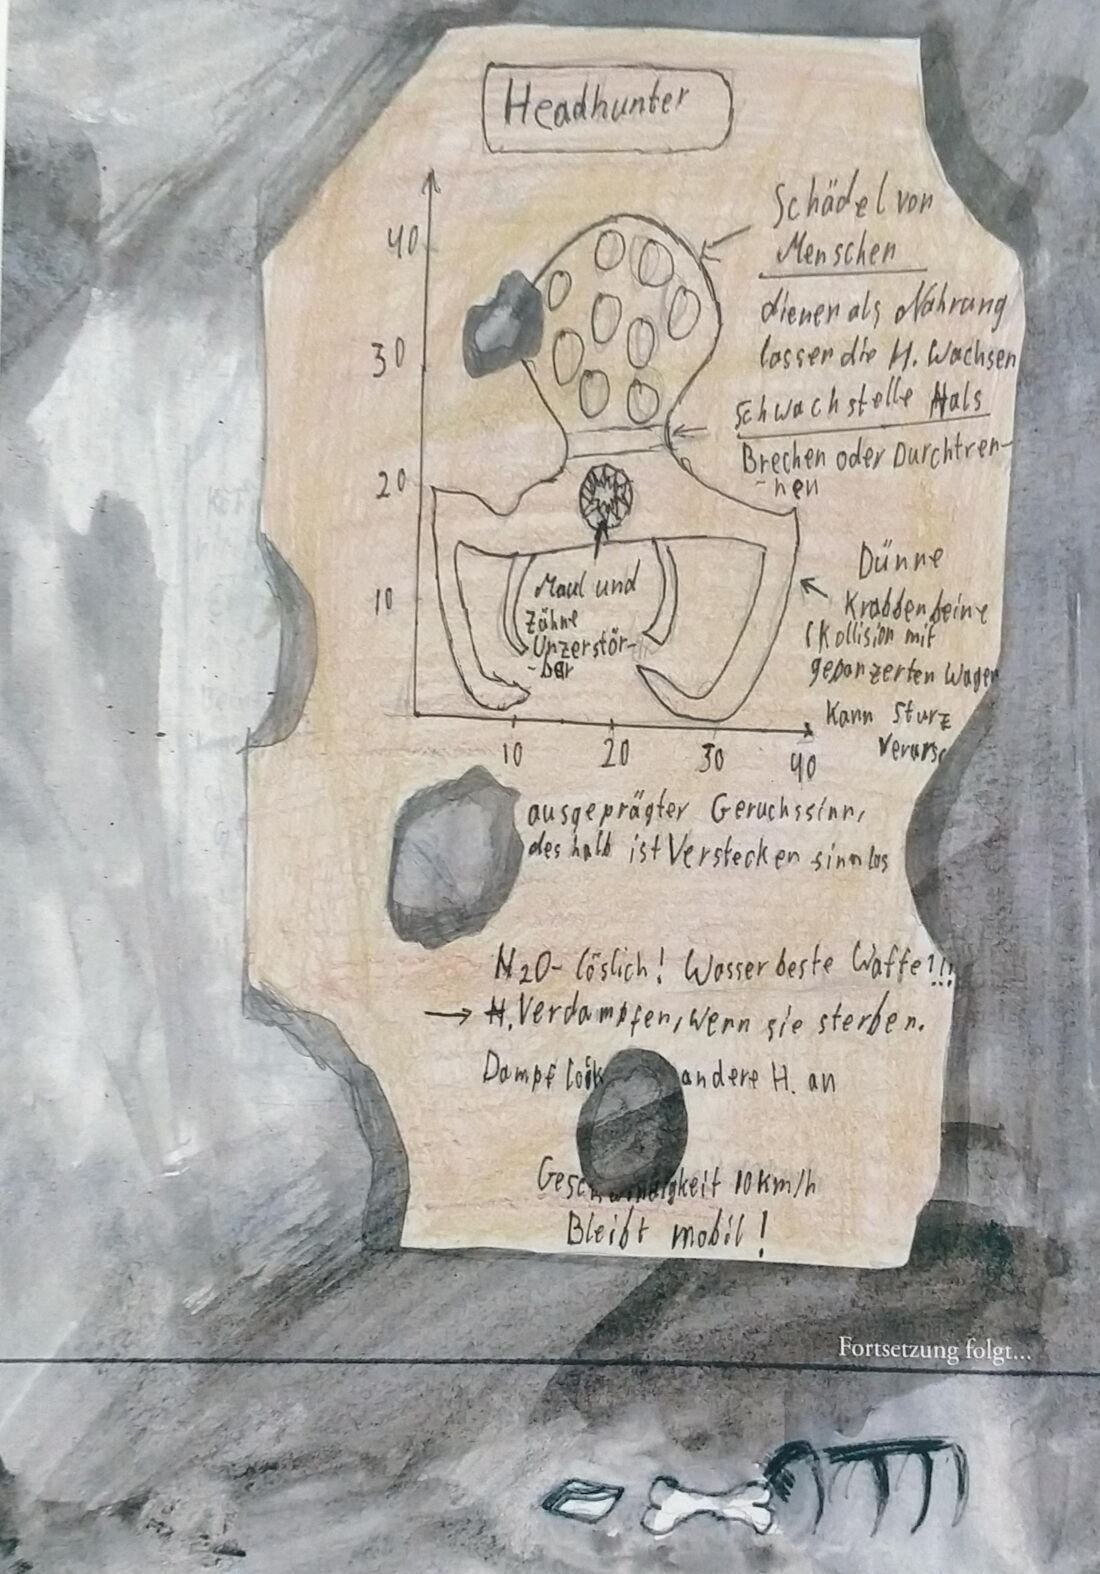 Headhunter
Schädel von
Menschen
dienen als Nahrung
lassen die H. Wachsen
Schwachstelle Hals
Brechen oder Durchtren-
-nen
Dünne
Krabbenbeine
(Kollision mit
gepanzerten Wagen
Kann Sturz
verurs
Maul und
Zähne
Unzerstör-
-bar
40
30
20
10
10 20 30 40
ausgeprägter Geruchssinn,
deshalb ist Verstecken sinnlos
H2O-löslich! Wasser beste Waffe!!!
→ H. Verdampfen, wenn sie sterben.
Dampf lock andere H. an
Geschwindigkeit 10 km/h
Bleibt mobil!
Fortsetzung folgt...